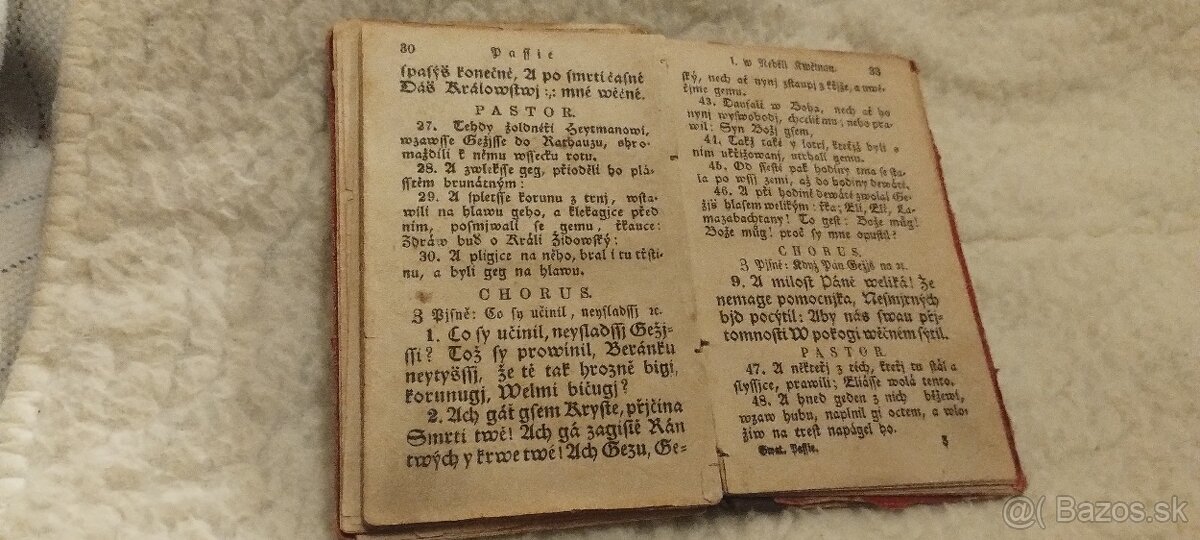 30 Passie
spasýs konečné, A po smrti časné
Dáš Králowstwj :,: mné wěčné.
PASTOR.
27. Tehdy žoldnéři Heytmanowi,
wzawsse Gežisse do Rathauzu, shro-
maždili k němu wssecku rotu.
28. A zwleksse geg, přioděli ho plá-
sstěm brunátným:
29. A spletsse korunu z trnj, wsta-
wili na hlawu geho, a klekagice před
ním, posmjwali se gemu, řkauce:
Zdráw buď o Králi Židowský:
30. A pligice na něho, brali tu třsti-
nu, a byli geg na hlawu.
CHORUS.
Z Pjsně: Co sy učinil, neysladssj ꝛc.
1. Co sy učinil, neysladssj Gežj-
ssi? Tož sy prowinil, Beránku
neytyšssj, že tě tak hrozně bigi,
korunugj, Welmi bičugj?
2. Ach gář gsem Kryste, přjčina
Smrti twé! Ach gá zagisté Rán
twých y krwe twé! Ach Gezu, Ge-
I. w Neděli Kwětnau. 33
ský, nech ať nynj sstaupj z křjže, a uwě-
řjme gemu.
43. Daufali w Boha, nech ať ho
nynj wyswobodj, chceli mu; nebo pra-
wil: Syn Božj gsem,
44. Takž také y lotri, kteřjž byli s
nim ukřižowanj, utrhali gemu.
45. Od ssesté pak hodiny tma se sta-
la po wssj zemi, až do hodiny dewáté.
46. A při hodině dewáté zwolal Ge-
žjš hlasem welikým: řka; Eli, Eli, La-
mazabachtany! To gest: Bože můg!
Bože můg! proč sy mne opustil?
CHORUS.
Z Pjsně: Když Pan Gežjs na ꝛc.
9. A milost Páně weliká! Že
nemage pomocnjka, Nesmjrných
bjd pocýtil: Aby nás swau přj-
tomnosti W pokogi wěčném sýtil.
PASTOR
47. A někteřj z těch, kteřj tu stál a
slyssjce, prawili; Eliásse wolá tento.
48. A hned geden z nich běžew,
wzaw hubu, naplnil gi octem, a wlo-
žiw na trest napágel ho.
Gmet. Passie. 3
@( Bazos.sk